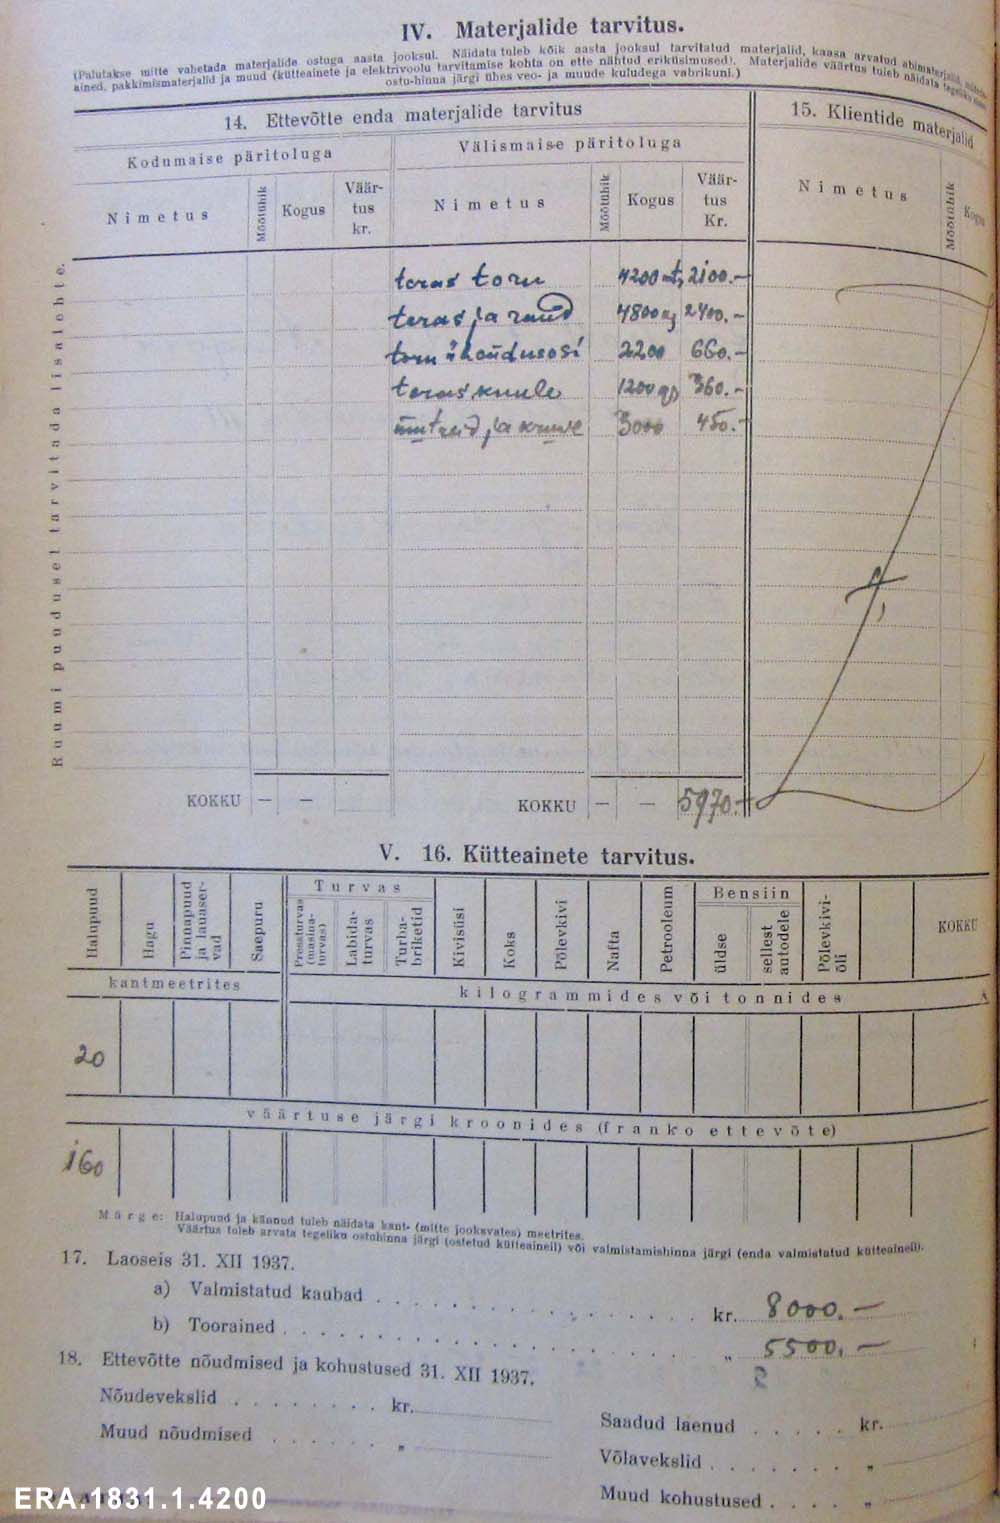 IV. Materjalide tarvitus.
(Palutakse mitte vahetada materjalide ostuga aasta jooksul. Näidata tuleb kõik aasta jooksul tarvitatud materjalid, kaasa arvatud
ained, pakkimismaterjalid ja muud (kütteainete ja elektrivoolu tarvitamise kohta on ette nähtud eriküsimused). Materjalide väärtus tuleb näidata
ostu-hinna järgi ühes veo- ja muude kuludega vabrikuni.)
14. Ettevõtte enda materjalide tarvitus
15. Klientide materjalid
Kodumaise päritoluga
Välismaise päritoluga
Nimetus
Mõõtühik
Kogus
Väär-
tus
kr.
Nimetus
Mõõtühik
Kogus
Väär-
tus
Kr.
Nimetus
Mõõtühik
Kogu
Ruumi puudusel tarvitada lisalehte.
teras toru 4200 2100.-
teras ja raud 4800 kg 2400.-
2200 660.-
teras kuule 1200 kg 360.-
ja 3000 450.-
KOKKU — —
KOKKU — — 5970.-
V. 16. Kütteainete tarvitus.
Halupuud
Hagu
Pinnapuud
ja lauaser-
vad
Saepuru
Turvas
Pressturvas
(masina-
turvas)
Labida-
turvas
Turba-
briketid
Kivisüsi
Koks
Põlevkivi
Nafta
Petrooleum
Bensiin
üldse
sellest
autodele
Põlevkivi-
õli
KOKKU
kantmeetrites
kilogrammides või tonnides
20
väärtuse järgi kroonides (franko ettevõte)
160
Märge: Halupuud ja kännud tuleb näidata kant- (mitte jooksvates) meetrites.
Väärtus tuleb arvata tegeliku ostuhinna järgi (ostetud kütteaineil) või valmistamishinna järgi (enda valmistatud kütteaineil).
17. Laoseis 31. XII 1937.
a) Valmistatud kaubad . . . . kr. 8000.—
b) Toorained . . . . " 5500.—
18. Ettevõtte nõudmised ja kohustused 31. XII 1937.
Nõudevekslid . . . . kr.
Muud nõudmised . . . . "
Saadud laenud . . . . kr.
Võlavekslid . . . . "
Muud kohustused . . . . "
ERA.1831.1.4200